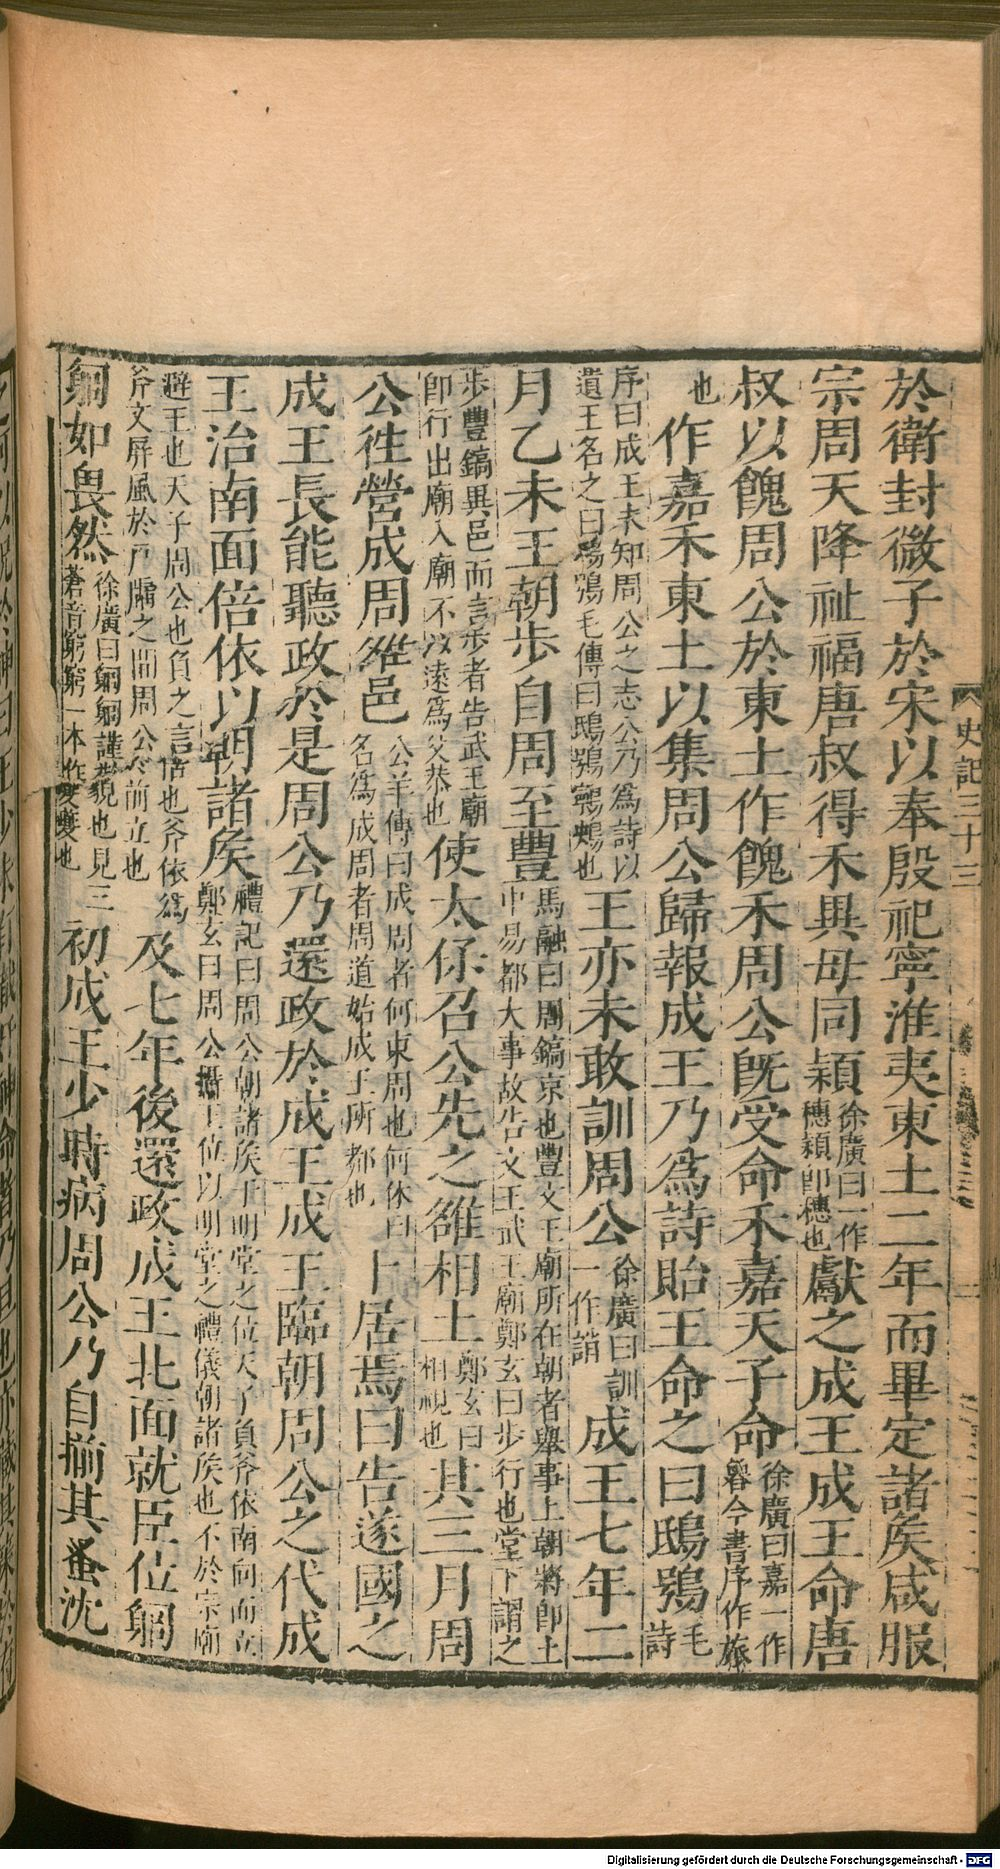 於衛封微子於宋以奉殷祀寧淮夷東土二年而畢定諸矦咸服
宗周天降祉福唐叔得禾異母同穎徐廣曰一作穗穎即穗也獻之成王成王命唐
叔以餽周公於東土作餽禾周公旣受命禾嘉天子命徐廣曰嘉一作魯今書序作旅
也作嘉禾東土以集周公歸報成王乃爲詩貽王命之曰鴟鴞毛詩
序曰成王未知周公之志公乃爲詩以遺王名之曰鴟鴞毛傳曰鴟鴞鸋鴂也王亦未敢訓周公徐廣曰訓一作誚成王七年二
月乙未王朝步自周至豐馬融曰周鎬京也豐文王廟所在朝者舉事上朝將即土中易都大事故告文王武王廟鄭玄曰步行也堂下謂之
步豐鎬異邑而言步者告武王廟即行出廟入廟不以遠爲父恭也使太保召公先之雒相土鄭玄曰相視也其三月周
公徃營成周雒邑公羊傳曰成周者何東周也何休曰名爲成周者周道始成王所都也卜居焉曰吉遂國之
成王長能聽政於是周公乃還政於成王成王臨朝周公之代成
王治南面倍依以朝諸矦禮記曰周公朝諸矦于明堂之位天子負斧依南向而立鄭玄曰周公攝王位以明堂之禮儀朝諸矦也不於宗廟
避王也天子周公也負之言倍也斧依爲斧文屛風於戸牖之間周公於前立也及七年後還政成王北面就臣位匔
匔如畏然徐廣曰匔匔謹敬貌也見三蒼音窮窮一本作夔夔也初成王少時病周公乃自揃其蚤沈
史記三十三